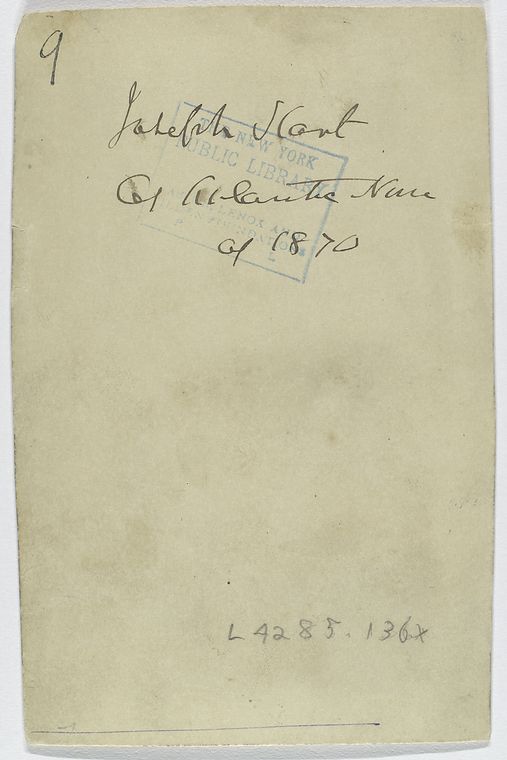 9
Joseph Start
Of Atlantic Nine
of 1870
THE NEW YORK
PUBLIC LIBRARY
LENOX AND
FOUNDATIONS
L
L 4285.136x